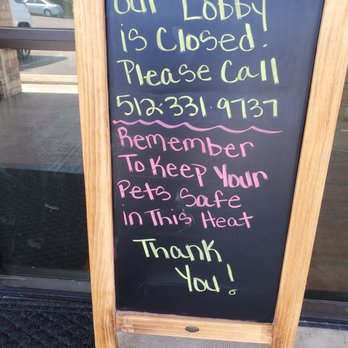 Our Lobby
is Closed!
Please Call
512·331·9737
Remember
To Keep Your
Pets Safe
in This Heat
Thank
You!